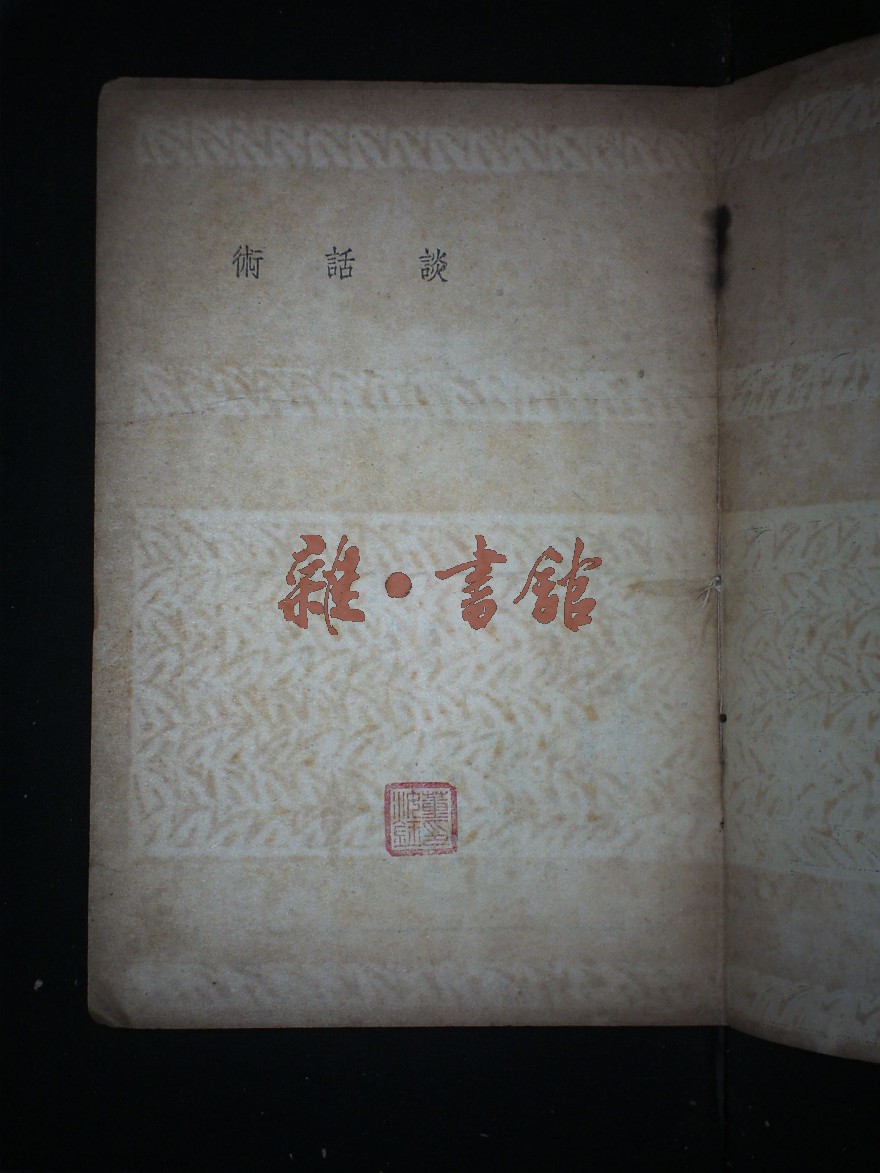 談話術
雜·書館